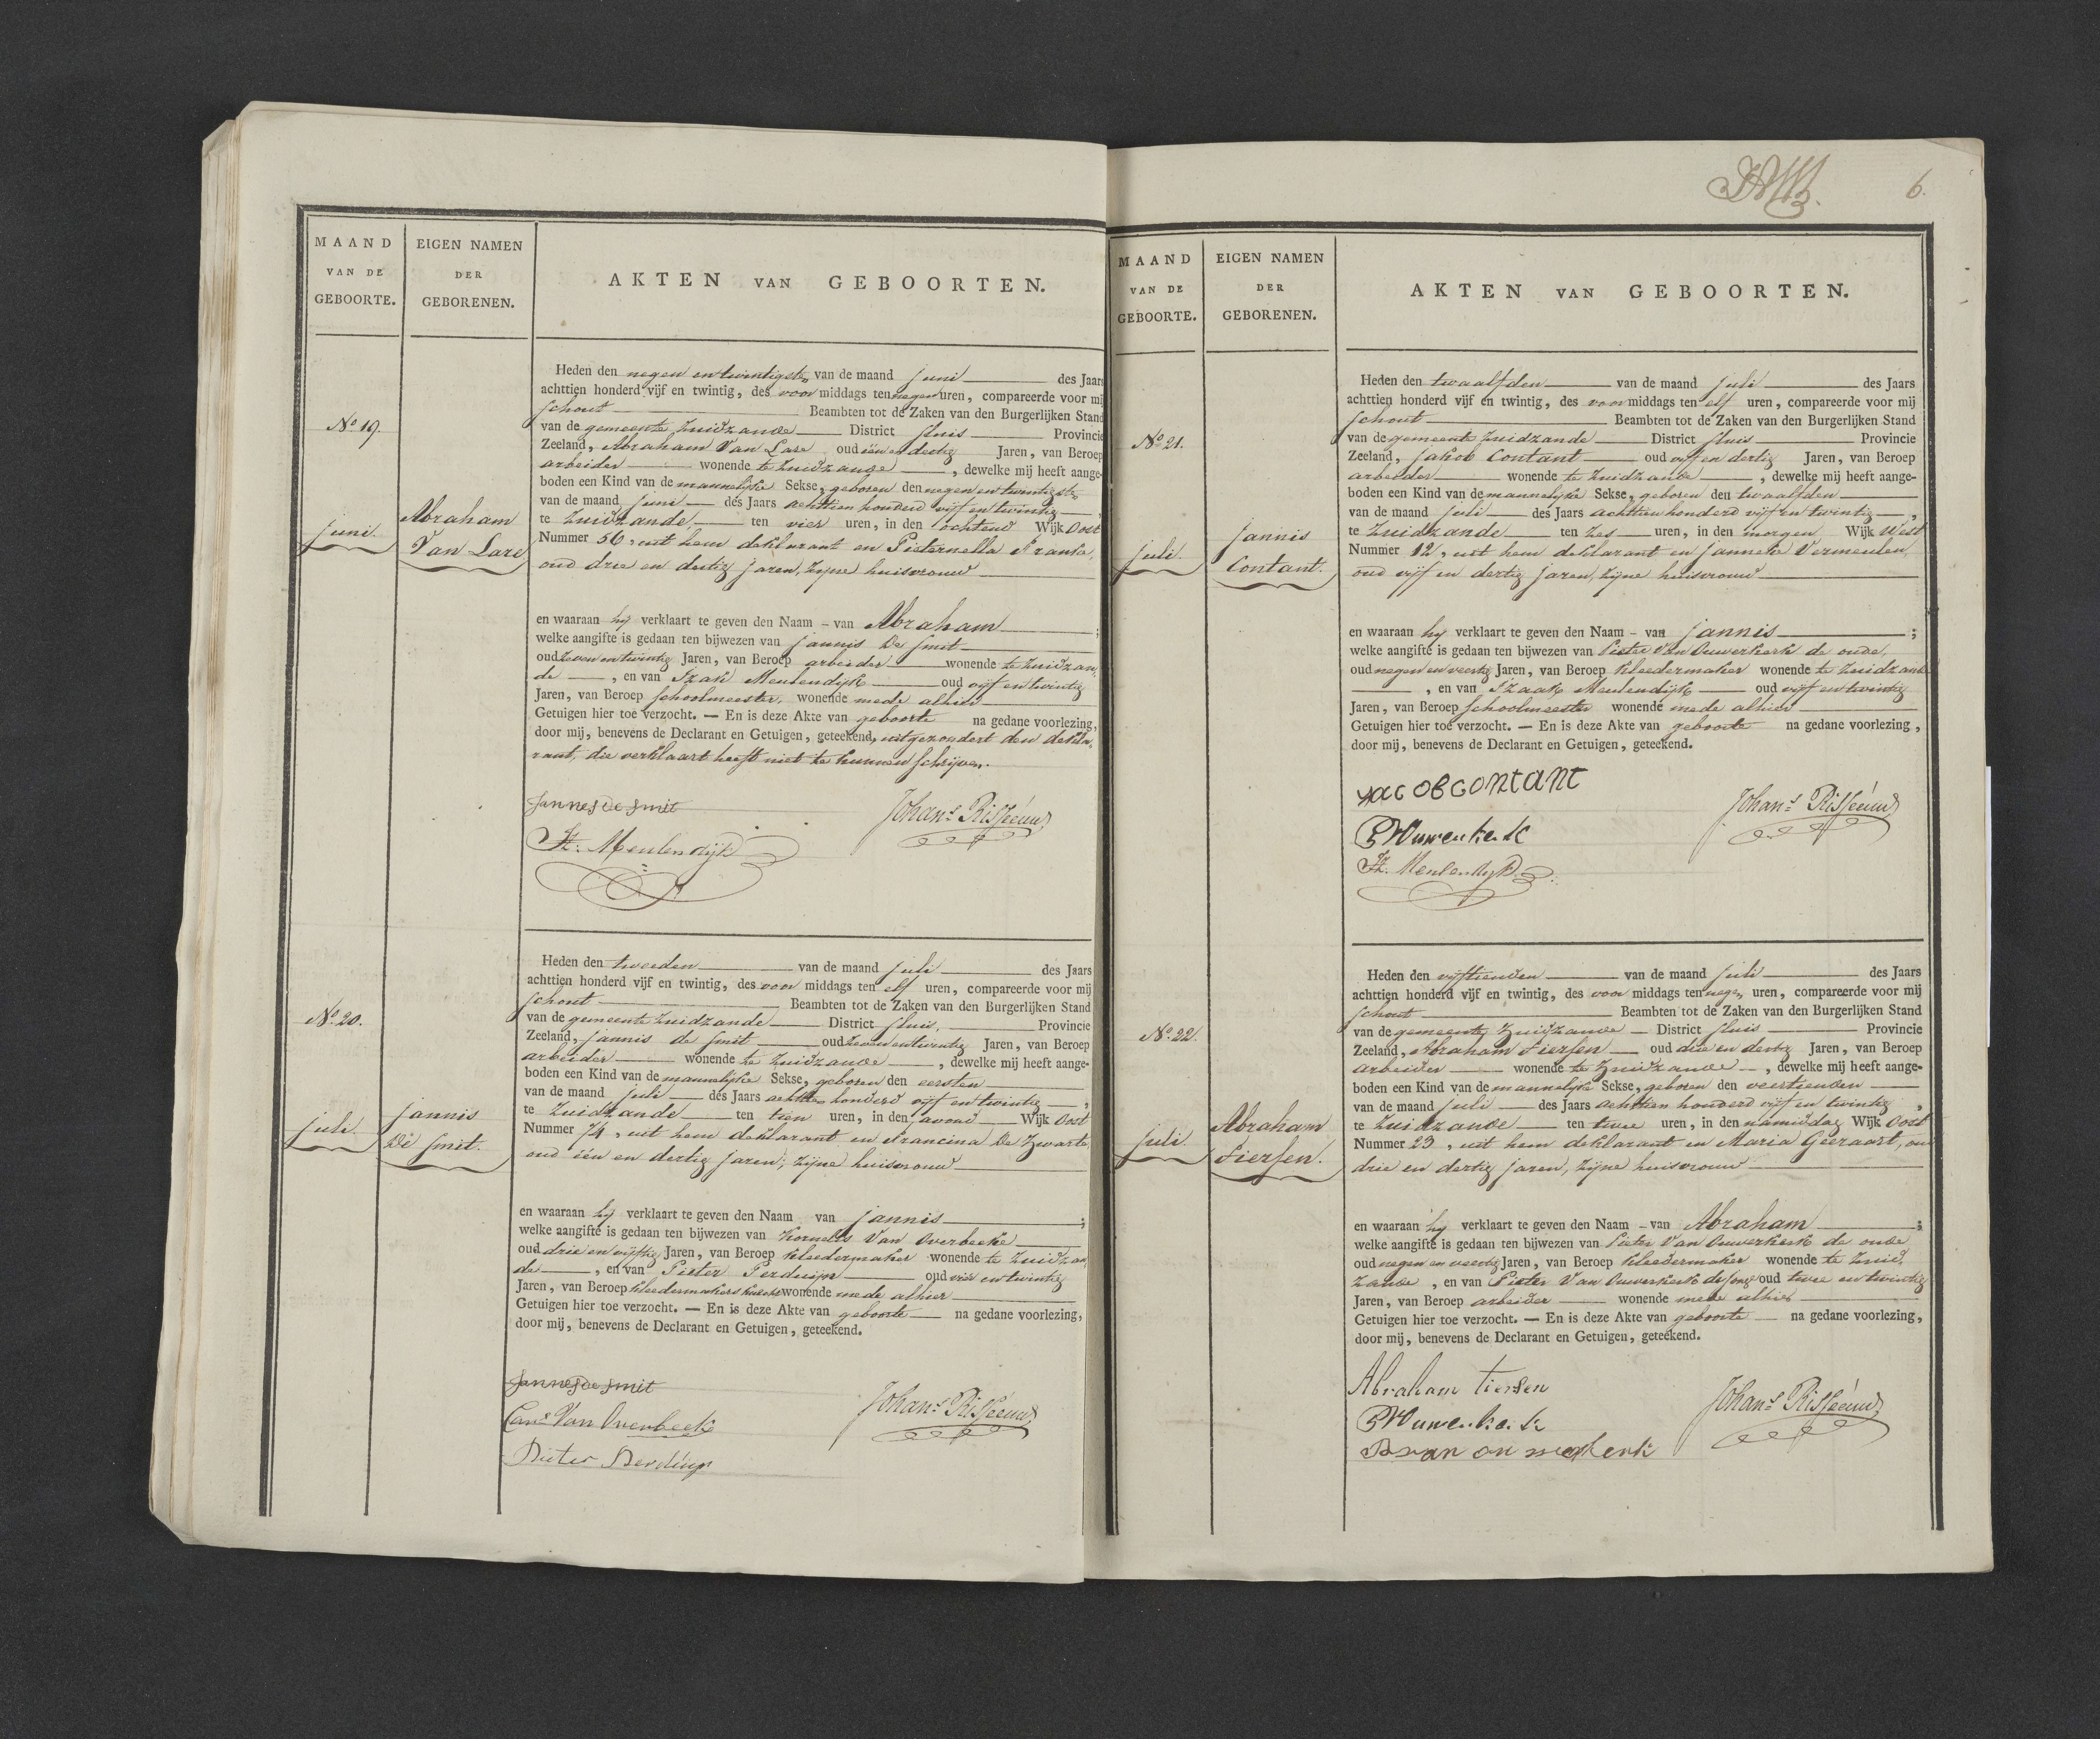 MAAND
VAN DE
GEBOORTE.
EIGEN NAMEN
DER
GEBORENEN.
AKTEN VAN GEBOORTEN.
No 19.
juni.
Abraham
Van Lare
Heden den negen en twintigste van de maand juni des Jaars
achttien honderd vijf en twintig, des voor middags ten negen uren, compareerde voor mij
schout Beambten tot de Zaken van den Burgerlijken Stand
van de gemeente Zuidzande District Sluis Provincie
Zeeland, Abraham Van Lare oud één en dertig Jaren, van Beroep
arbeider wonende te Zuidzande, dewelke mij heeft aange-
boden een Kind van de mannelijke Sekse, geboren den negen en twintigste
van de maand juni des Jaars achttien honderd vijf en twintig,
te Zuidzande, ten vier uren, in den ochtend Wijk Oost
Nummer 56, uit hem deklarant en Pieternella Franke,
oud drie en dertig jaren, zijne huisvrouw
en waaraan hij verklaart te geven den Naam - van Abraham;
welke aangifte is gedaan ten bijwezen van jannis De Smit
oud zeven en twintig Jaren, van Beroep arbeider wonende te Zuidzan,
de, en van Izaak Meulendijk oud vijf en twintig
Jaren, van Beroep schoolmeester, wonende mede alhier
Getuigen hier toe verzocht. — En is deze Akte van geboorte na gedane voorlezing,
door mij, benevens de Declarant en Getuigen, geteekend, uitgezondert den dekla,
rant, die verklaart heeft niet te kunnen schrijven.
Jannes de Smit
Johans. Risseeuw
Iz: Meulendijk
No. 20.
juli.
jannis
De Smit.
Heden den tweeden van de maand juli des Jaars
achttien honderd vijf en twintig, des voor middags ten elf uren, compareerde voor mij
schout Beambten tot de Zaken van den Burgerlijken Stand
van de gemeente Zuidzande District Sluis, Provincie
Zeeland, jannis de Smit oud zeven en twintig Jaren, van Beroep
arbeider wonende te Zuidzande, dewelke mij heeft aange-
boden een Kind van de mannelijke Sekse, geboren den eersten
van de maand juli des Jaars achttien honderd vijf en twintig,
te Zuidzande ten tien uren, in den avond Wijk Oost
Nummer 74, uit hem deklarant en Francina De Zwarte,
oud één en dertig jaren, zijne huisvrouw
en waaraan hij verklaart te geven den Naam van jannis;
welke aangifte is gedaan ten bijwezen van Kornelis Van Overbeeke
oud drie en vijftig Jaren, van Beroep kleedermaker wonende te Zuidzan,
de, en van Pieter Perduijn oud vier en twintig
Jaren, van Beroep kleedermakers knecht wonende mede alhier
Getuigen hier toe verzocht. — En is deze Akte van geboorte na gedane voorlezing,
door mij, benevens de Declarant en Getuigen, geteekend.
Jannes de Smit
Johans. Risseeuw
Cors Van Overbeeke
Pieter Perduijn
6.
MAAND
VAN DE
GEBOORTE.
EIGEN NAMEN
DER
GEBORENEN.
AKTEN VAN GEBOORTEN.
No. 21.
juli.
jannis
Contant.
Heden den twaalfden van de maand juli des Jaars
achttien honderd vijf en twintig, des voor middags ten elf uren, compareerde voor mij
schout Beambten tot de Zaken van den Burgerlijken Stand
van de gemeente Zuidzande District Sluis Provincie
Zeeland, Jakob Contant oud vijf en dertig Jaren, van Beroep
arbeider wonende te Zuidzande, dewelke mij heeft aange-
boden een Kind van de mannelijke Sekse, geboren den twaalfden
van de maand juli des Jaars achttien honderd vijf en twintig,
te Zuidzande ten zes uren, in den morgen Wijk West
Nummer 12, uit hem deklarant en janneke Vermeulen,
oud vijf en dertig jaren, zijne huisvrouw
en waaraan hij verklaart te geven den Naam - van jannis;
welke aangifte is gedaan ten bijwezen van Pieter Van Ouwerkerk de oude,
oud negen en veertig Jaren, van Beroep kleedermaker wonende te Zuidzande
, en van Izaak Meulendijk oud vijf en twintig
Jaren, van Beroep schoolmeester wonende mede alhier
Getuigen hier toe verzocht. — En is deze Akte van geboorte na gedane voorlezing,
door mij, benevens de Declarant en Getuigen, geteekend.
jacob contant
Johans. Risseeuw
PVOuwerkerk
Iz. Meulendijk
No. 22.
juli.
Abraham
Tiersen.
Heden den vijftienden van de maand juli des Jaars
achttien honderd vijf en twintig, des voor middags ten negen uren, compareerde voor mij
schout Beambten tot de Zaken van den Burgerlijken Stand
van de gemeente Zuidzande District Sluis Provincie
Zeeland, Abraham Tiersen oud drie en dertig Jaren, van Beroep
arbeider wonende te Zuidzande, dewelke mij heeft aange-
boden een Kind van de mannelijke Sekse, geboren den veertienden
van de maand juli des Jaars achttien honderd vijf en twintig,
te Zuidzande ten twee uren, in den namiddag Wijk Oost
Nummer 23, uit hem deklarant en Maria Geeraart, oud
drie en dertig jaren, zijne huisvrouw
en waaraan hij verklaart te geven den Naam - van Abraham;
welke aangifte is gedaan ten bijwezen van Pieter Van Ouwerkerk de oude
oud negen en veertig Jaren, van Beroep kleedermaker wonende te Zuid,
zande, en van Pieter Van Ouwerkerk de jong oud twee en twintig
Jaren, van Beroep arbeider wonende mede alhier
Getuigen hier toe verzocht. — En is deze Akte van geboorte na gedane voorlezing,
door mij, benevens de Declarant en Getuigen, geteekend.
Abraham Tiersen
Johans. Risseeuw
PVOuwerkerk
P van ouwerkerk